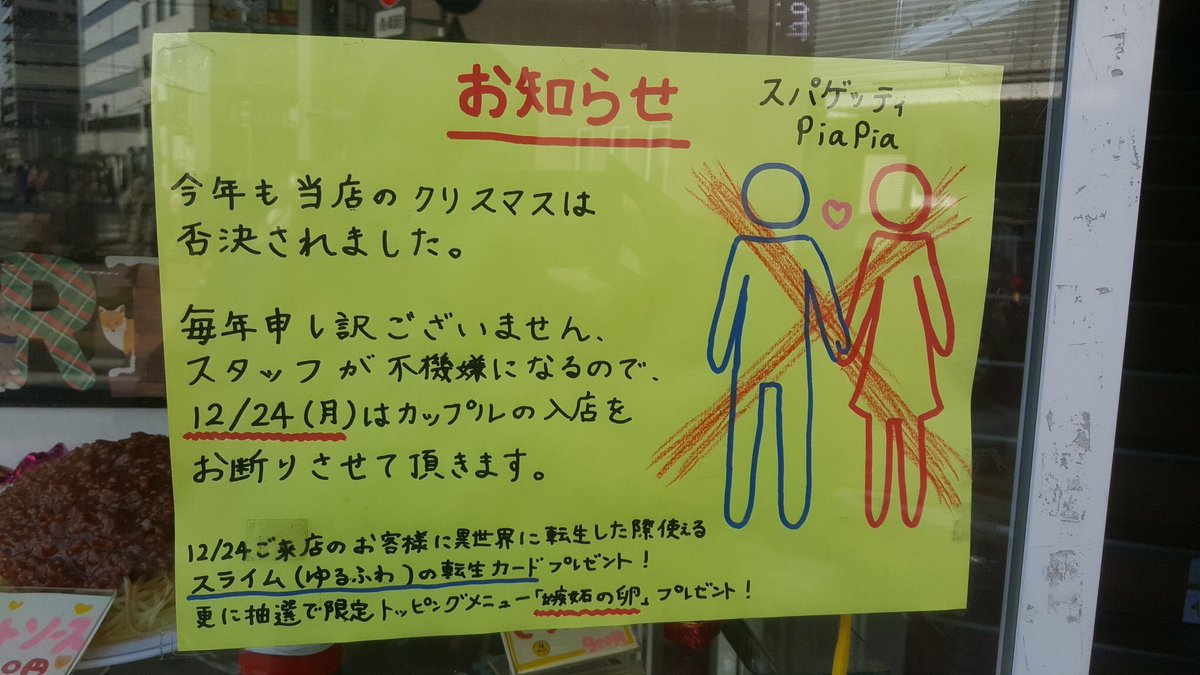 お知らせ
スパゲッティ
PiaPia
今年も当店のクリスマスは
否決されました。
毎年申し訳ございません、
スタッフが不機嫌になるので、
12/24(月)はカップルの入店を
お断りさせて頂きます。
12/24ご来店のお客様に異世界に転生した際使える
スライム(ゆるふわ)の転生カードプレゼント!
更に抽選で限定トッピングメニュー「嫉妬の卵」プレゼント!
R
ソース
0円
900円